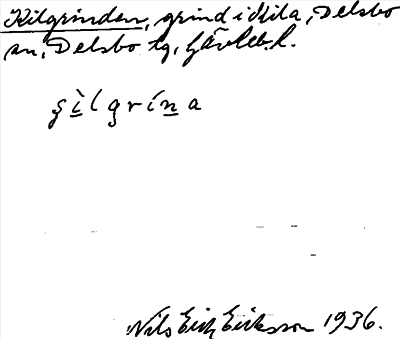 Kilgrinden, grind i Kila, Delsbo
sn, Delsbo tg, Gävleb. l.
ʂìlgrína
Nils Erik Eriksson 1936.